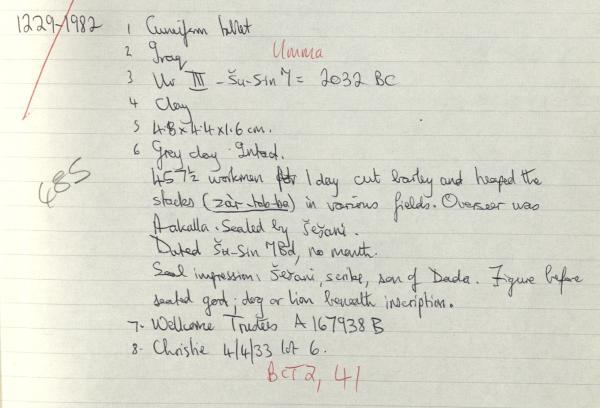 1229-1982 1 Cuneiform tablet
2 Iraq Umma
3 Ur III - Šu-Sin 7 = 2032 BC
4 Clay
5 4.8 x 4.4 x 1.6 cm.
6 Grey clay. Intact.
457½ workmen for 1 day cut barley and heaped the
485
stacks (zàr-tab-ba) in various fields. Overseer was
Aakalla. Sealed by Šešani.
Dated Šu-Sin 7Bd, no month.
Seal impression: Šešani, scribe, son of Dada. Figure before
seated god; dog or lion beneath inscription.
7. Wellcome Trustees A 167938 B
8. Christie 4/4/33 lot 6.
BCT 2, 41